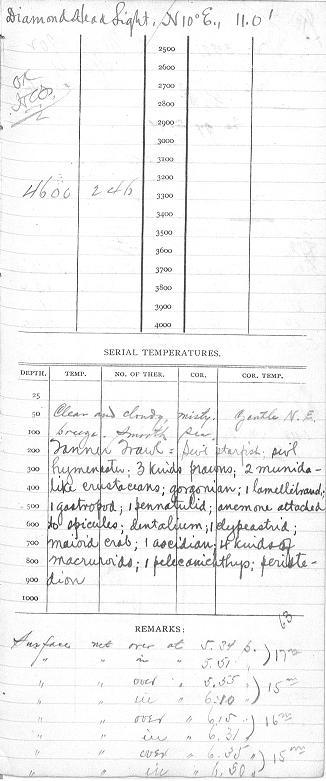 Diamond Head Light, N10°E., 11.0'
2500
2600
2700
2800
2900
3000
3100
3200
4600 246 3300
3400
3500
3600
3700
3800
3900
4000
SERIAL TEMPERATURES.
DEPTH. TEMP. NO. OF THER. COR. COR. TEMP.
25
50 Clear and cloudy, misty. Gentle N.E.
100 breeze. Smooth sea.
200 Tanner Trawl = Devil starfish;
300 hymenaster; 3 kinds prawns; 2 munida-
400 like crustaceans; gorgonian; 1 lamellibranch;
500 1 gastropod; 1 pennatulid; anemone attached
600 to spicules; dentalium; 1 clypeastrid;
700 maioid crab; 1 ascidian; 4 kinds of
800 macruroids; 1 pelecanichthys; periste-
900 dion
1000
63
REMARKS:
Surface net over at 5.34 p. ) 17m
" " in " 5.51
" " over " 5.55 ) 15m
" " in " 6.10
" " over " 6.15 ) 16m
" " in " 6.31
" " over " 6.35 ) 15m
" " in " 6.50